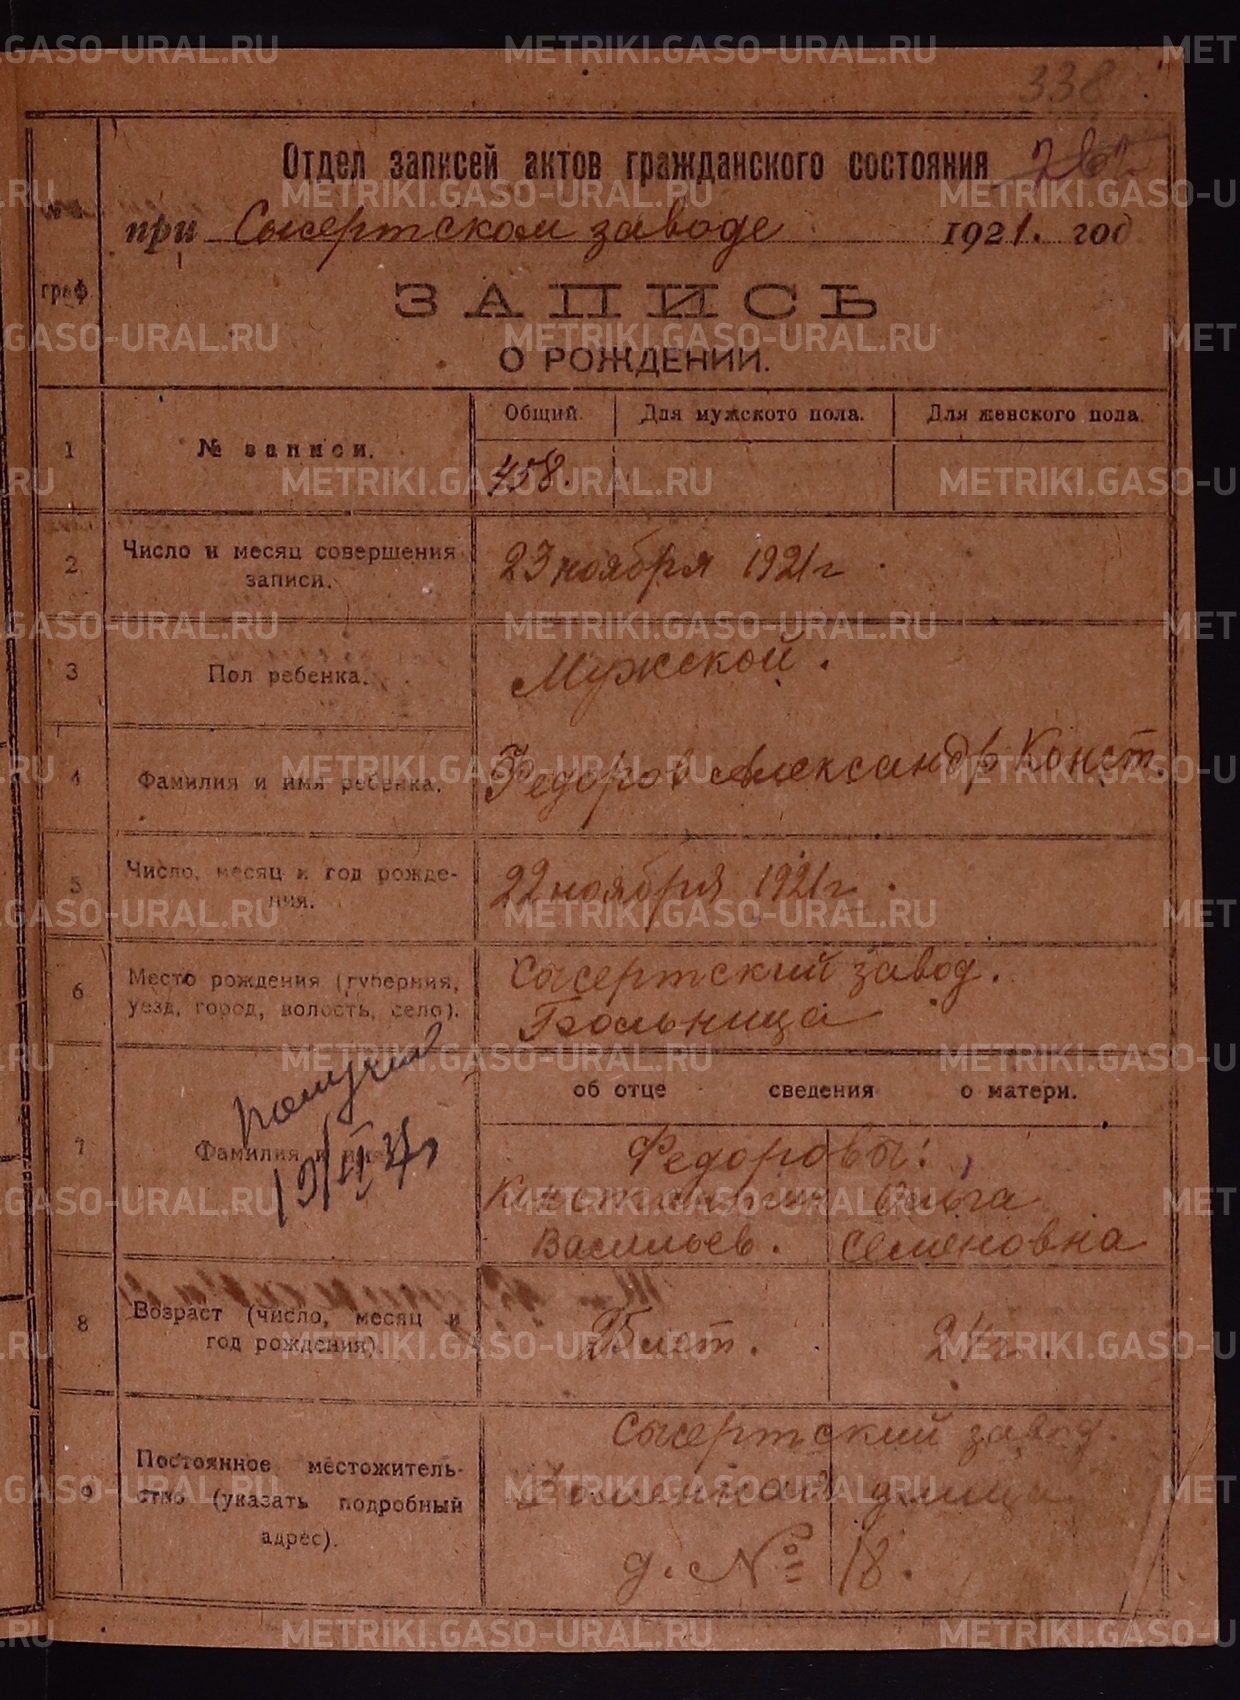 338
Отдел записей актов гражданского состояния
№№ граф.
при Сысертском заводе 1921. год
ЗАПИСЬ
О РОЖДЕНИИ.
1 № записи. Общий. Для мужского пола. Для женского пола.
458.
2 Число и месяц совершения записи. 23 ноября 1921 г.
3 Пол ребенка. Мужской.
4 Фамилия и имя ребенка. Федоров Александр Конст.
5 Число, месяц и год рожде-
ния. 22 ноября 1921 г.
6 Место рождения (губерния, уезд, город, волость, село). Сысертский завод.
Больница
об отце сведения о матери.
7 Фамилия и имя Федоровы:
Константин Ольга
Васильев. Семеновна
получил
8 Возраст (число, месяц и год рождения). 25 лет. 24 г.
9 Постоянное местожитель-
ство (указать подробный
адрес).
Сысертский завод.
улица
д. № 18.
METRIKI.GASO-URAL.RU